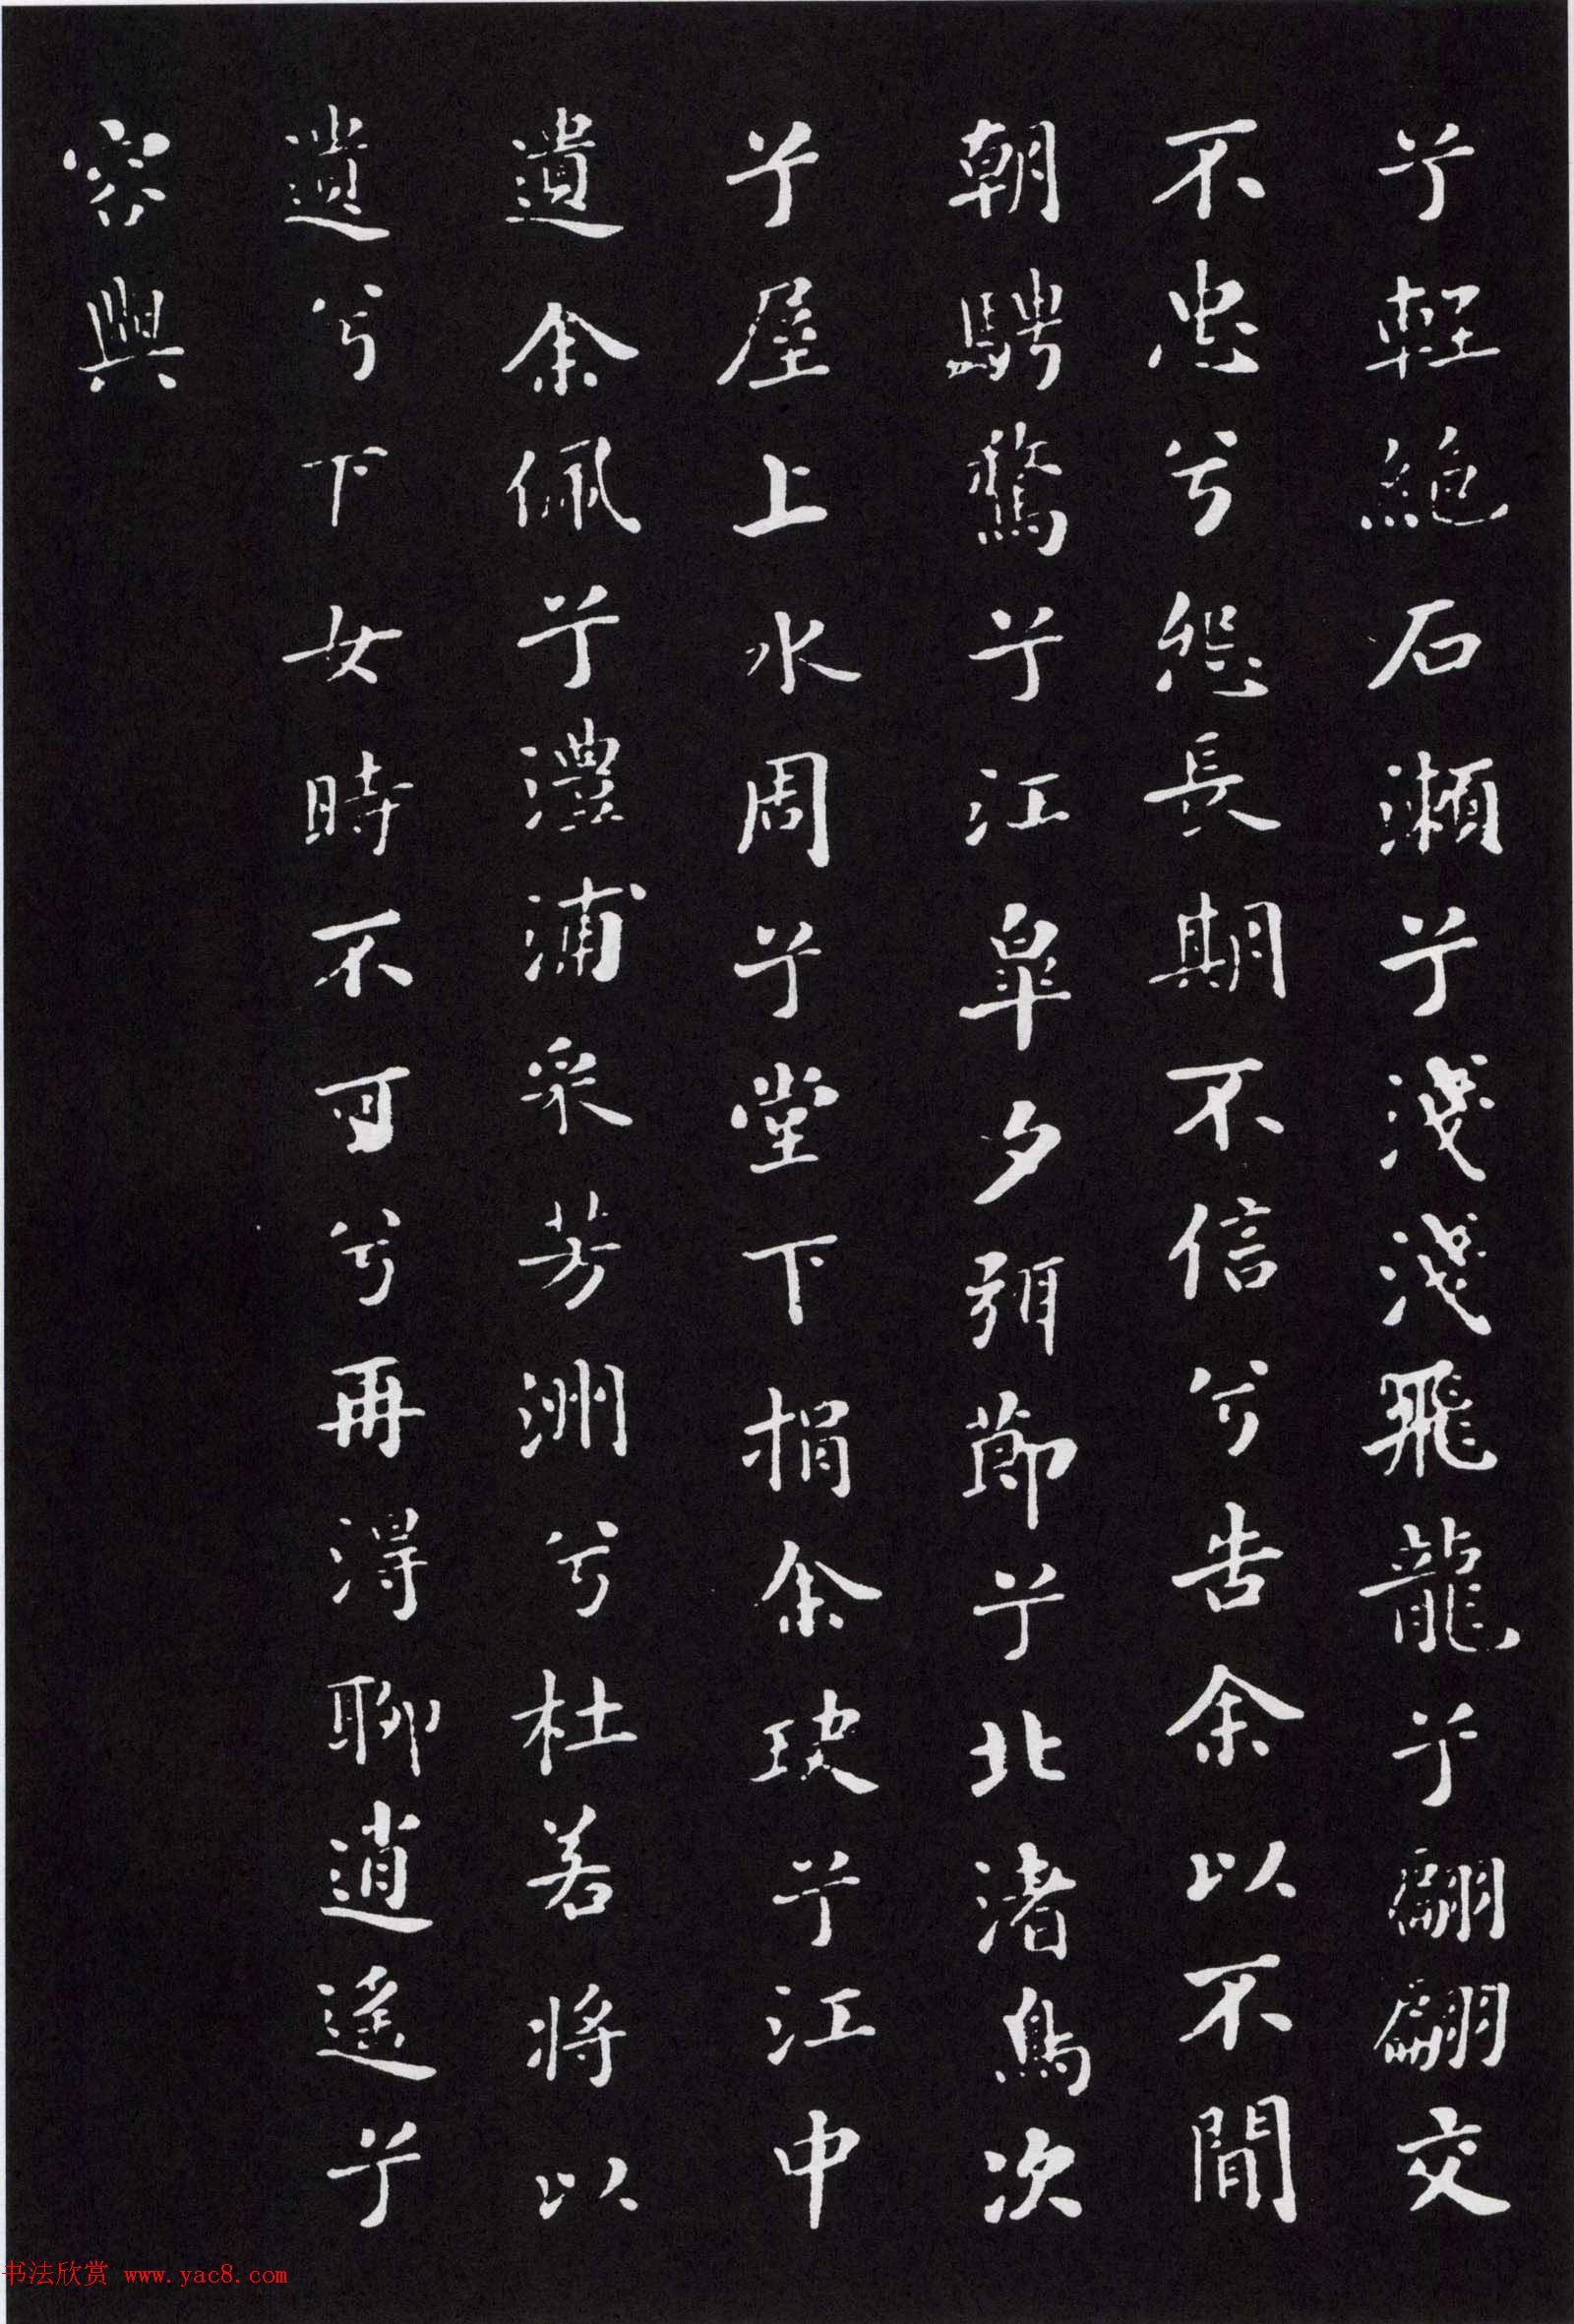 兮輕絶石瀨兮淺淺飛龍兮翩翩交
不忠兮怨長期不信兮告余以不閒
朝騁騖兮江皋夕弭節兮北渚鳥次
兮屋上水周兮堂下捐余玦兮江中
遺余佩兮澧浦采芳洲兮杜若將以
遺兮下女時不可兮再得聊逍遙兮
容與
书法欣赏 www.yac8.com